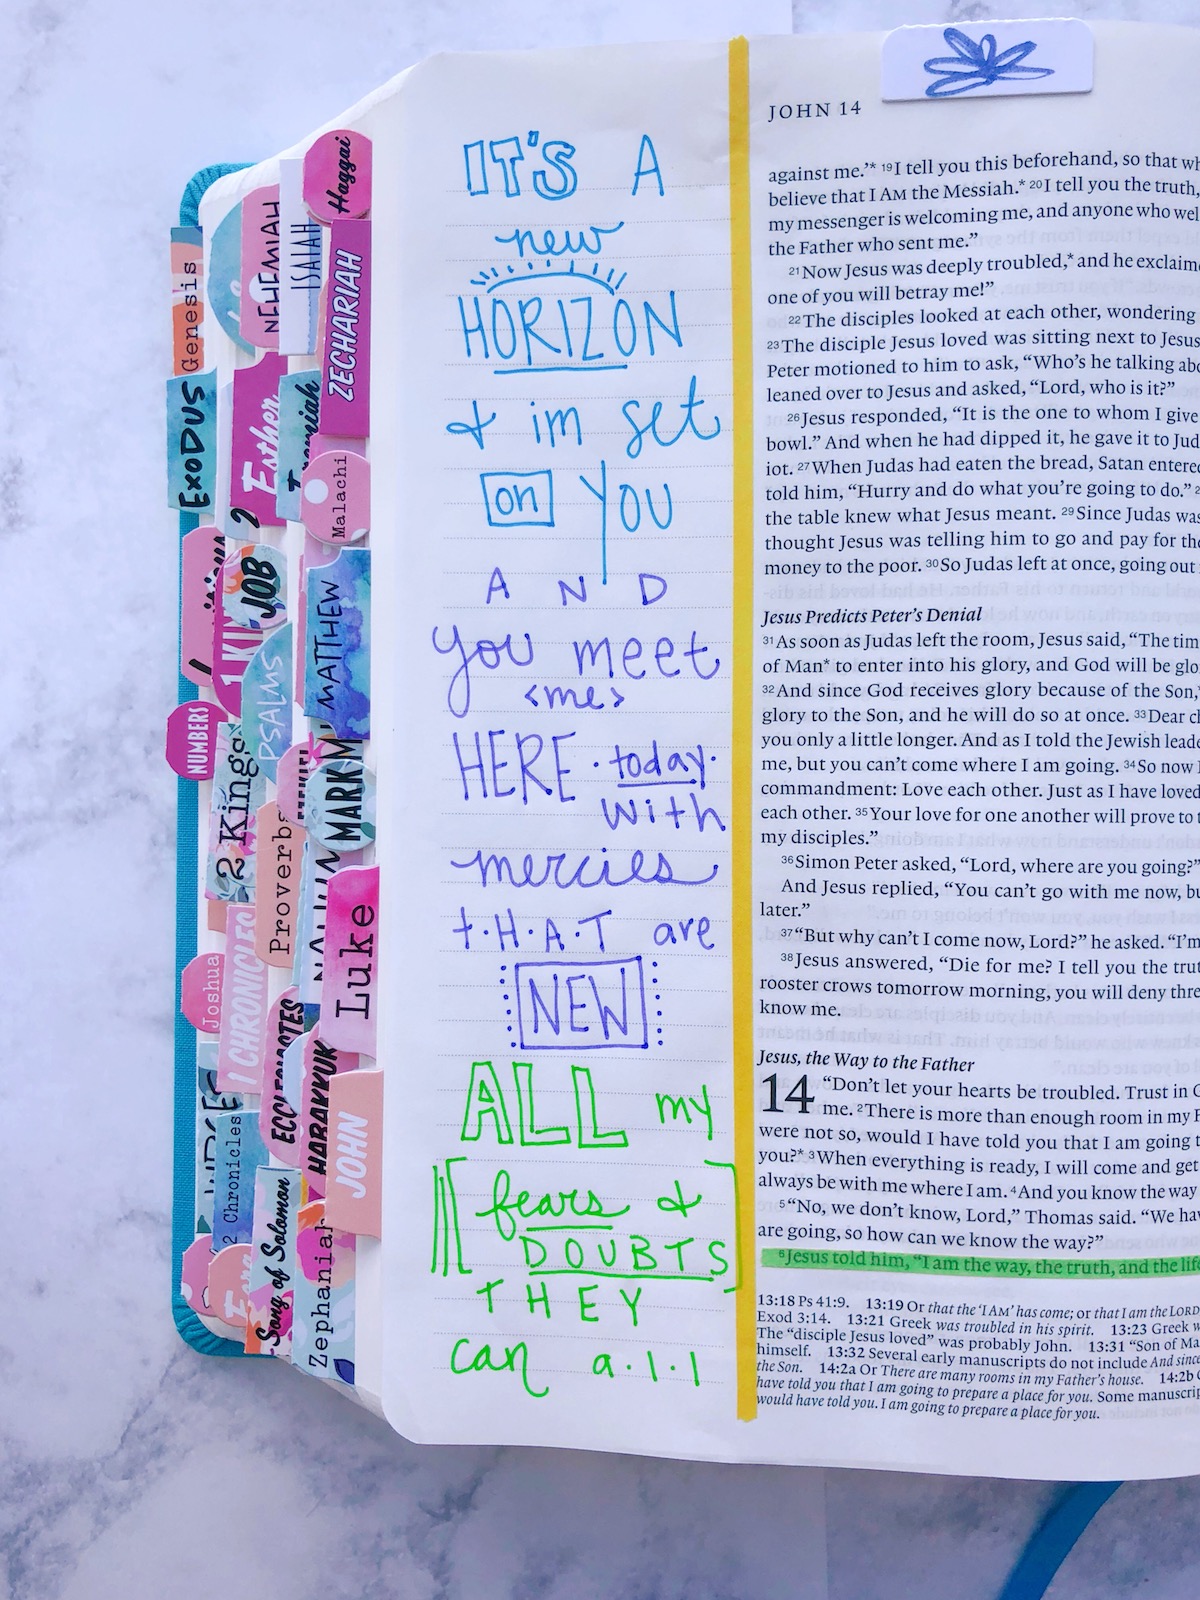 Haggai
NEHEMIAH
ISAIAH
ZECHARIAH
Genesis
EXODUS
Esther
Malachi
2
JOB
1 KIN
MATTHEW
PSALMS
NUMBERS
2 Kings
MARK
Proverbs
Luke
Joshua
1 CHRONICLES
ECCLESIASTES
HABAKKUK
JOHN
2 Chronicles
Song of Solomon
Zephaniah
IT'S A
new
HORIZON
& im set
on YOU
AND
you meet
<me>
HERE · today ·
with
mercies
t·H·A·T are
NEW
ALL my
[fears &
DOUBTS]
THEY
can a·l·l
JOHN 14
against me.’* 19I tell you this beforehand, so that wh
believe that I AM the Messiah.* 20I tell you the truth,
my messenger is welcoming me, and anyone who wel
the Father who sent me.”
21Now Jesus was deeply troubled,* and he exclaime
one of you will betray me!”
22The disciples looked at each other, wondering
23The disciple Jesus loved was sitting next to Jesus
Peter motioned to him to ask, “Who’s he talking abo
leaned over to Jesus and asked, “Lord, who is it?”
26Jesus responded, “It is the one to whom I give
bowl.” And when he had dipped it, he gave it to Jud
iot. 27When Judas had eaten the bread, Satan entered
told him, “Hurry and do what you’re going to do.” 2
the table knew what Jesus meant. 29Since Judas was
thought Jesus was telling him to go and pay for the
money to the poor. 30So Judas left at once, going out
Jesus Predicts Peter’s Denial
31As soon as Judas left the room, Jesus said, “The tim
of Man* to enter into his glory, and God will be glo
32And since God receives glory because of the Son,
glory to the Son, and he will do so at once. 33Dear ch
you only a little longer. And as I told the Jewish leade
me, but you can’t come where I am going. 34So now I
commandment: Love each other. Just as I have loved
each other. 35Your love for one another will prove to t
my disciples.”
36Simon Peter asked, “Lord, where are you going?”
And Jesus replied, “You can’t go with me now, bu
later.”
37“But why can’t I come now, Lord?” he asked. “I’m
38Jesus answered, “Die for me? I tell you the trut
rooster crows tomorrow morning, you will deny thre
know me.
Jesus, the Way to the Father
14 “Don’t let your hearts be troubled. Trust in G
me. 2There is more than enough room in my F
were not so, would I have told you that I am going t
you?* 3When everything is ready, I will come and get
always be with me where I am. 4And you know the way
5“No, we don’t know, Lord,” Thomas said. “We hav
are going, so how can we know the way?”
6Jesus told him, “I am the way, the truth, and the life
13:18 Ps 41:9. 13:19 Or that the ‘I AM’ has come; or that I am the LORD
Exod 3:14. 13:21 Greek was troubled in his spirit. 13:23 Greek w
The “disciple Jesus loved” was probably John. 13:31 “Son of Ma
himself. 13:32 Several early manuscripts do not include And since
the Son. 14:2a Or There are many rooms in my Father’s house. 14:2b O
have told you that I am going to prepare a place for you. Some manuscrip
would have told you. I am going to prepare a place for you.